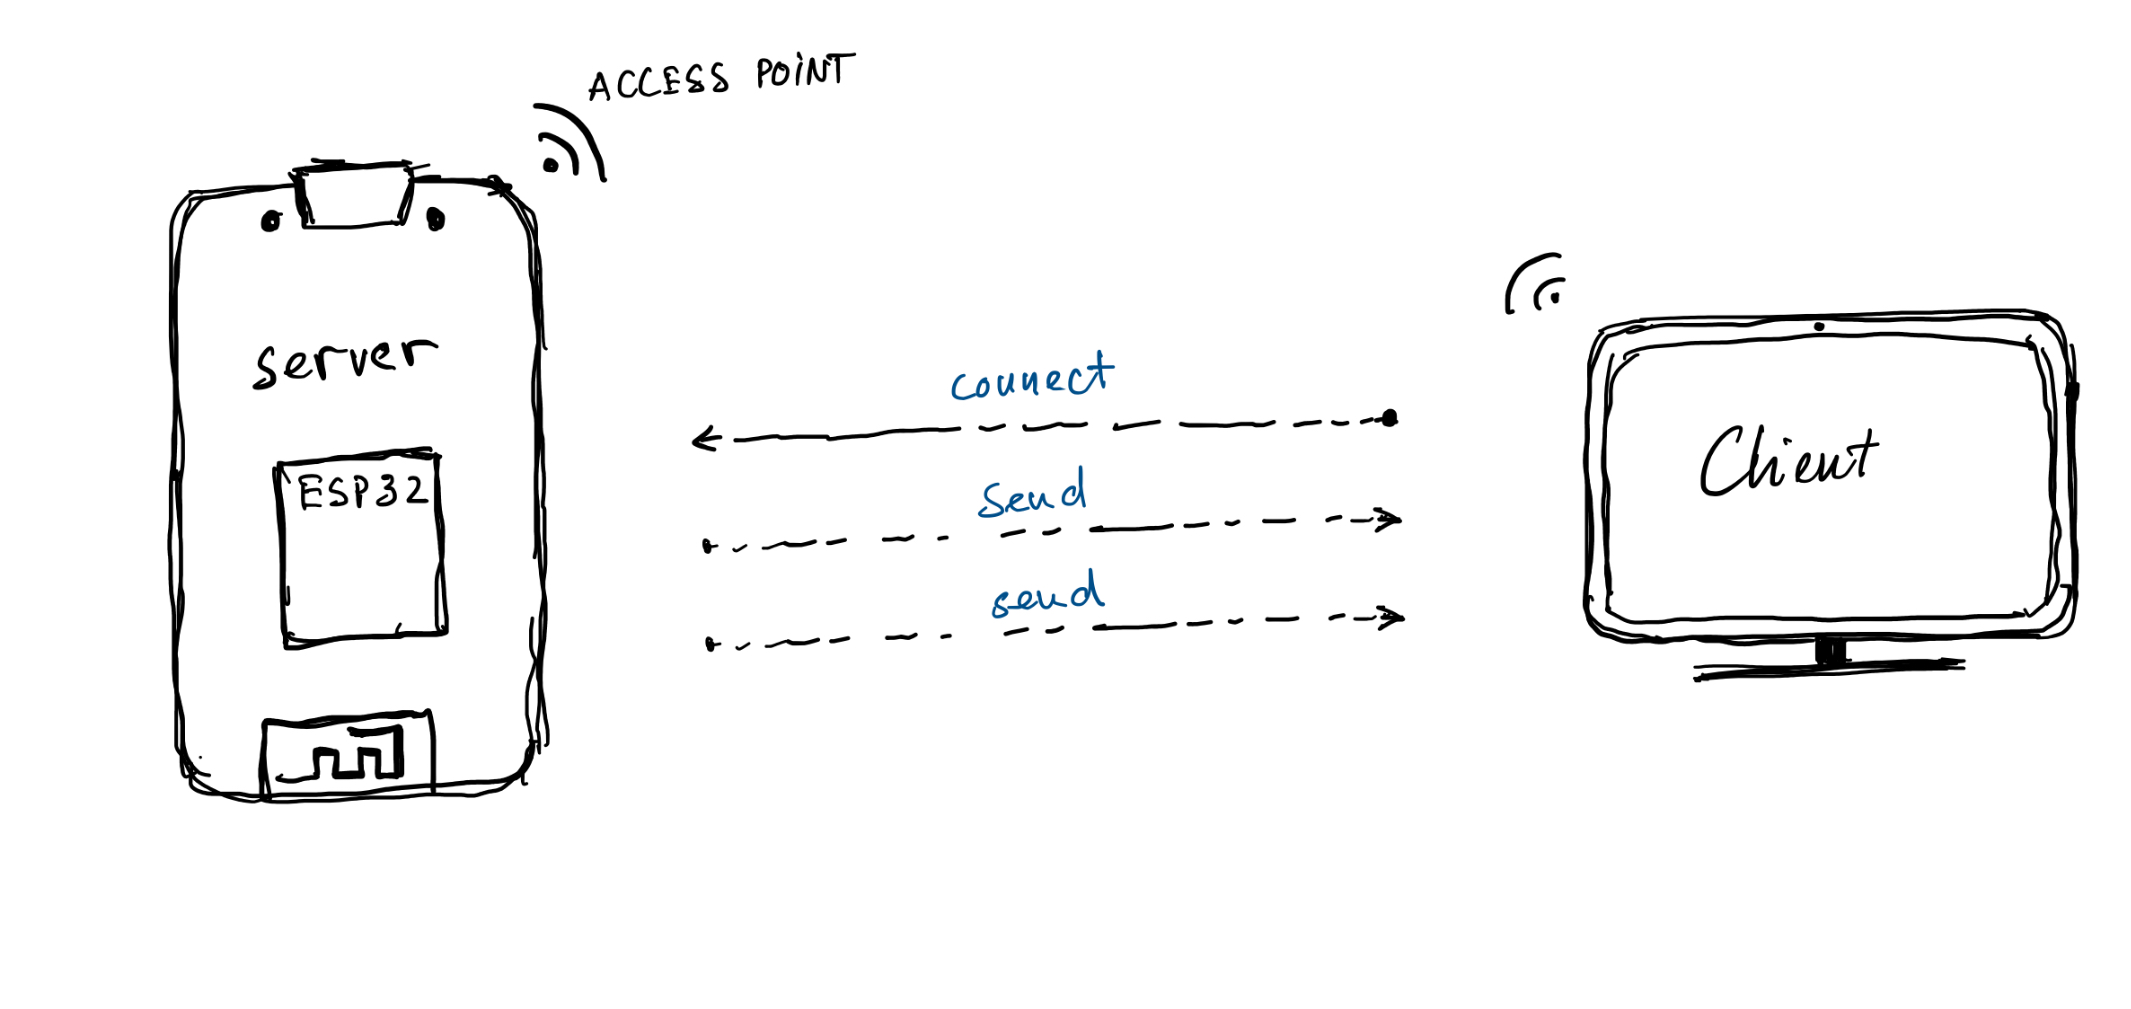 ACCESS POINT
server
ESP32
connect
Send
send
Client